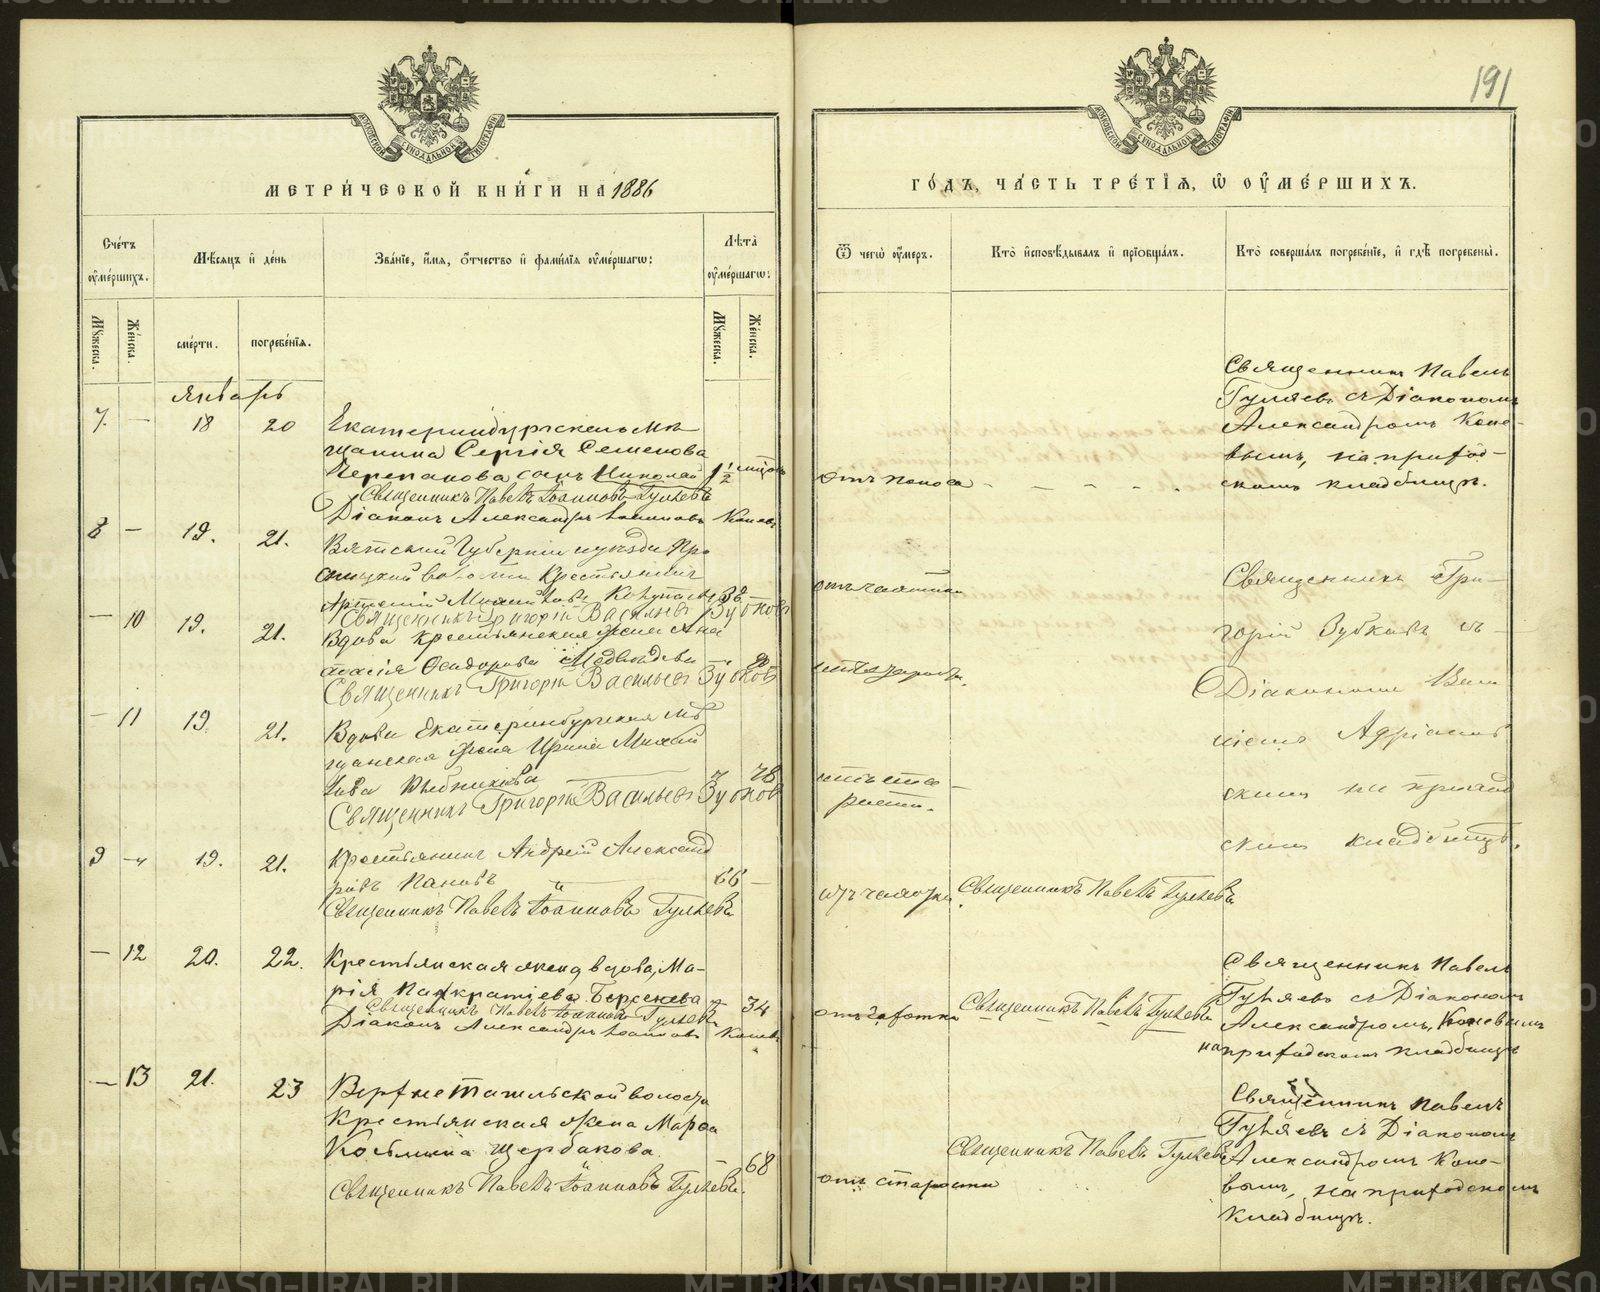 191
МЕТРИ́ЧЕСКОЙ КНИ́ГИ НА 1886
ГО́ДЪ, ЧА́СТЬ ТРЕ́ТІЯ, Ѡ ОУМЕ́РШИХЪ.
Сче́тъ оуме́ршихъ.
Мѣ́сяцъ и де́нь
Зва́нїе, и́мя, о́тчество и фами́лїя оуме́ршагѡ:
Лѣ́та оуме́ршагѡ:
Ѿ чегѡ̀ оу́меръ.
Кто̀ исповѣ́дывалъ и прїобща́лъ.
Кто̀ соверша́лъ погребе́нїе, и гдѣ̀ погребены̀.
Му́жеска.
Же́нска.
сме́рти.
погребе́нїя.
Му́жеска.
Же́нска.
Январь
7. — 18 20
Екатеринбургскаго мѣ-
щанина Сергія Семенова
Черепанова сынъ Николай 1½
Священникъ Павелъ Іоанновъ Гуляевъ
Діаконъ Александръ Іоанновъ Коневъ
отъ поноса
Священникъ Павелъ
Гуляевъ съ Діакономъ
Александромъ Коне-
вымъ, на приход-
скомъ кладбищѣ.
8 — 19. 21.
Вятской Губерніи
волости Крестьянинъ
Артемій
Священникъ Григорій Васильевъ Зубковъ
отъ чахотки
Священникъ Гри-
горій Зубковъ съ
Діакономъ
на приход
скомъ кладбищѣ.
— 10 19. 21.
Вдова Крестьянская жена Ана
стасія Медвѣдева
Священникъ Григорій Васильевъ Зубковъ
— 11 19 21.
Вдова Екатеринбургская мѣ
щанская жена Ирина Михай
лова 78
Священникъ Григорій Васильевъ Зубковъ
отъ ста
рости.
9 — 19. 21.
Крестьянинъ Андрей Александ
ровъ Пановъ 66 —
Священникъ Павелъ Іоанновъ Гуляевъ
отъ чахотки
Священникъ Павелъ Гуляевъ
— 12 20. 22.
Крестьянская жена вдова, Ма-
рія Панкратіева Берсенева 34
Священникъ Павелъ Іоанновъ Гуляевъ
Діаконъ Александръ Іоанновъ Коневъ
отъ чахотки
Священникъ Павелъ Гуляевъ
Священникъ Павелъ
Гуляевъ съ Діакономъ
Александромъ Коневымъ
на приходскомъ кладбищѣ
— 13 21. 23
Верхнетагильской волости
Крестьянская жена Марѳа
Козьмина Щербакова. 68
Священникъ Павелъ Іоанновъ Гуляевъ.
отъ старости
Священникъ Павелъ Гуляевъ
Священникъ Павелъ
Гуляевъ съ Діакономъ
Александромъ Коне-
вымъ, на приходскомъ
кладбищѣ.
METRIKI.GASO-URAL.RU